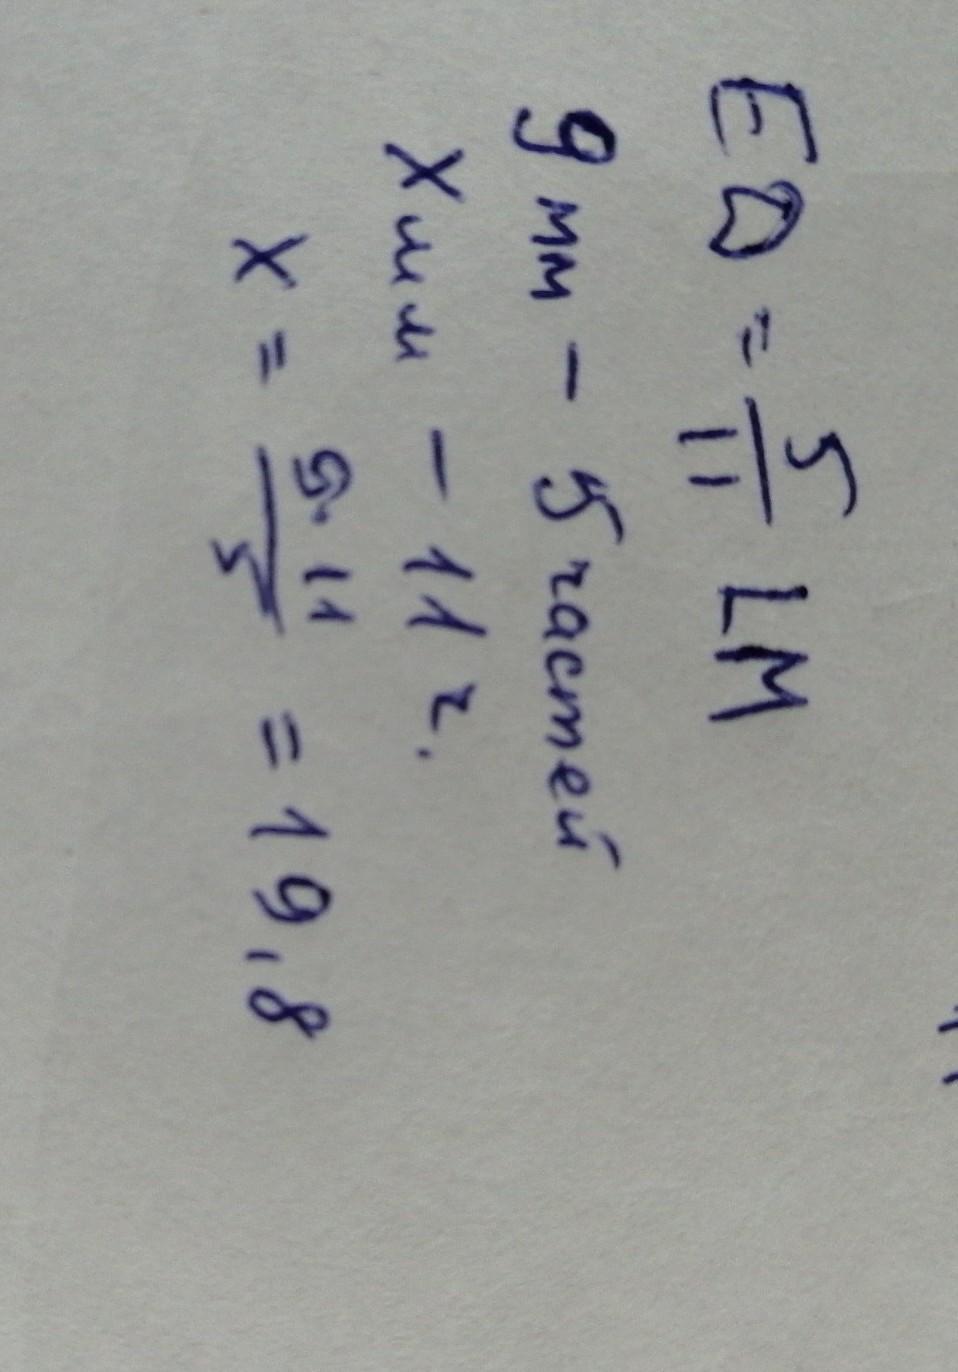 ED = 5/11 LM
9 мм - 5 частей
X мм - 11 ч.
X = 9·11/5 = 19,8